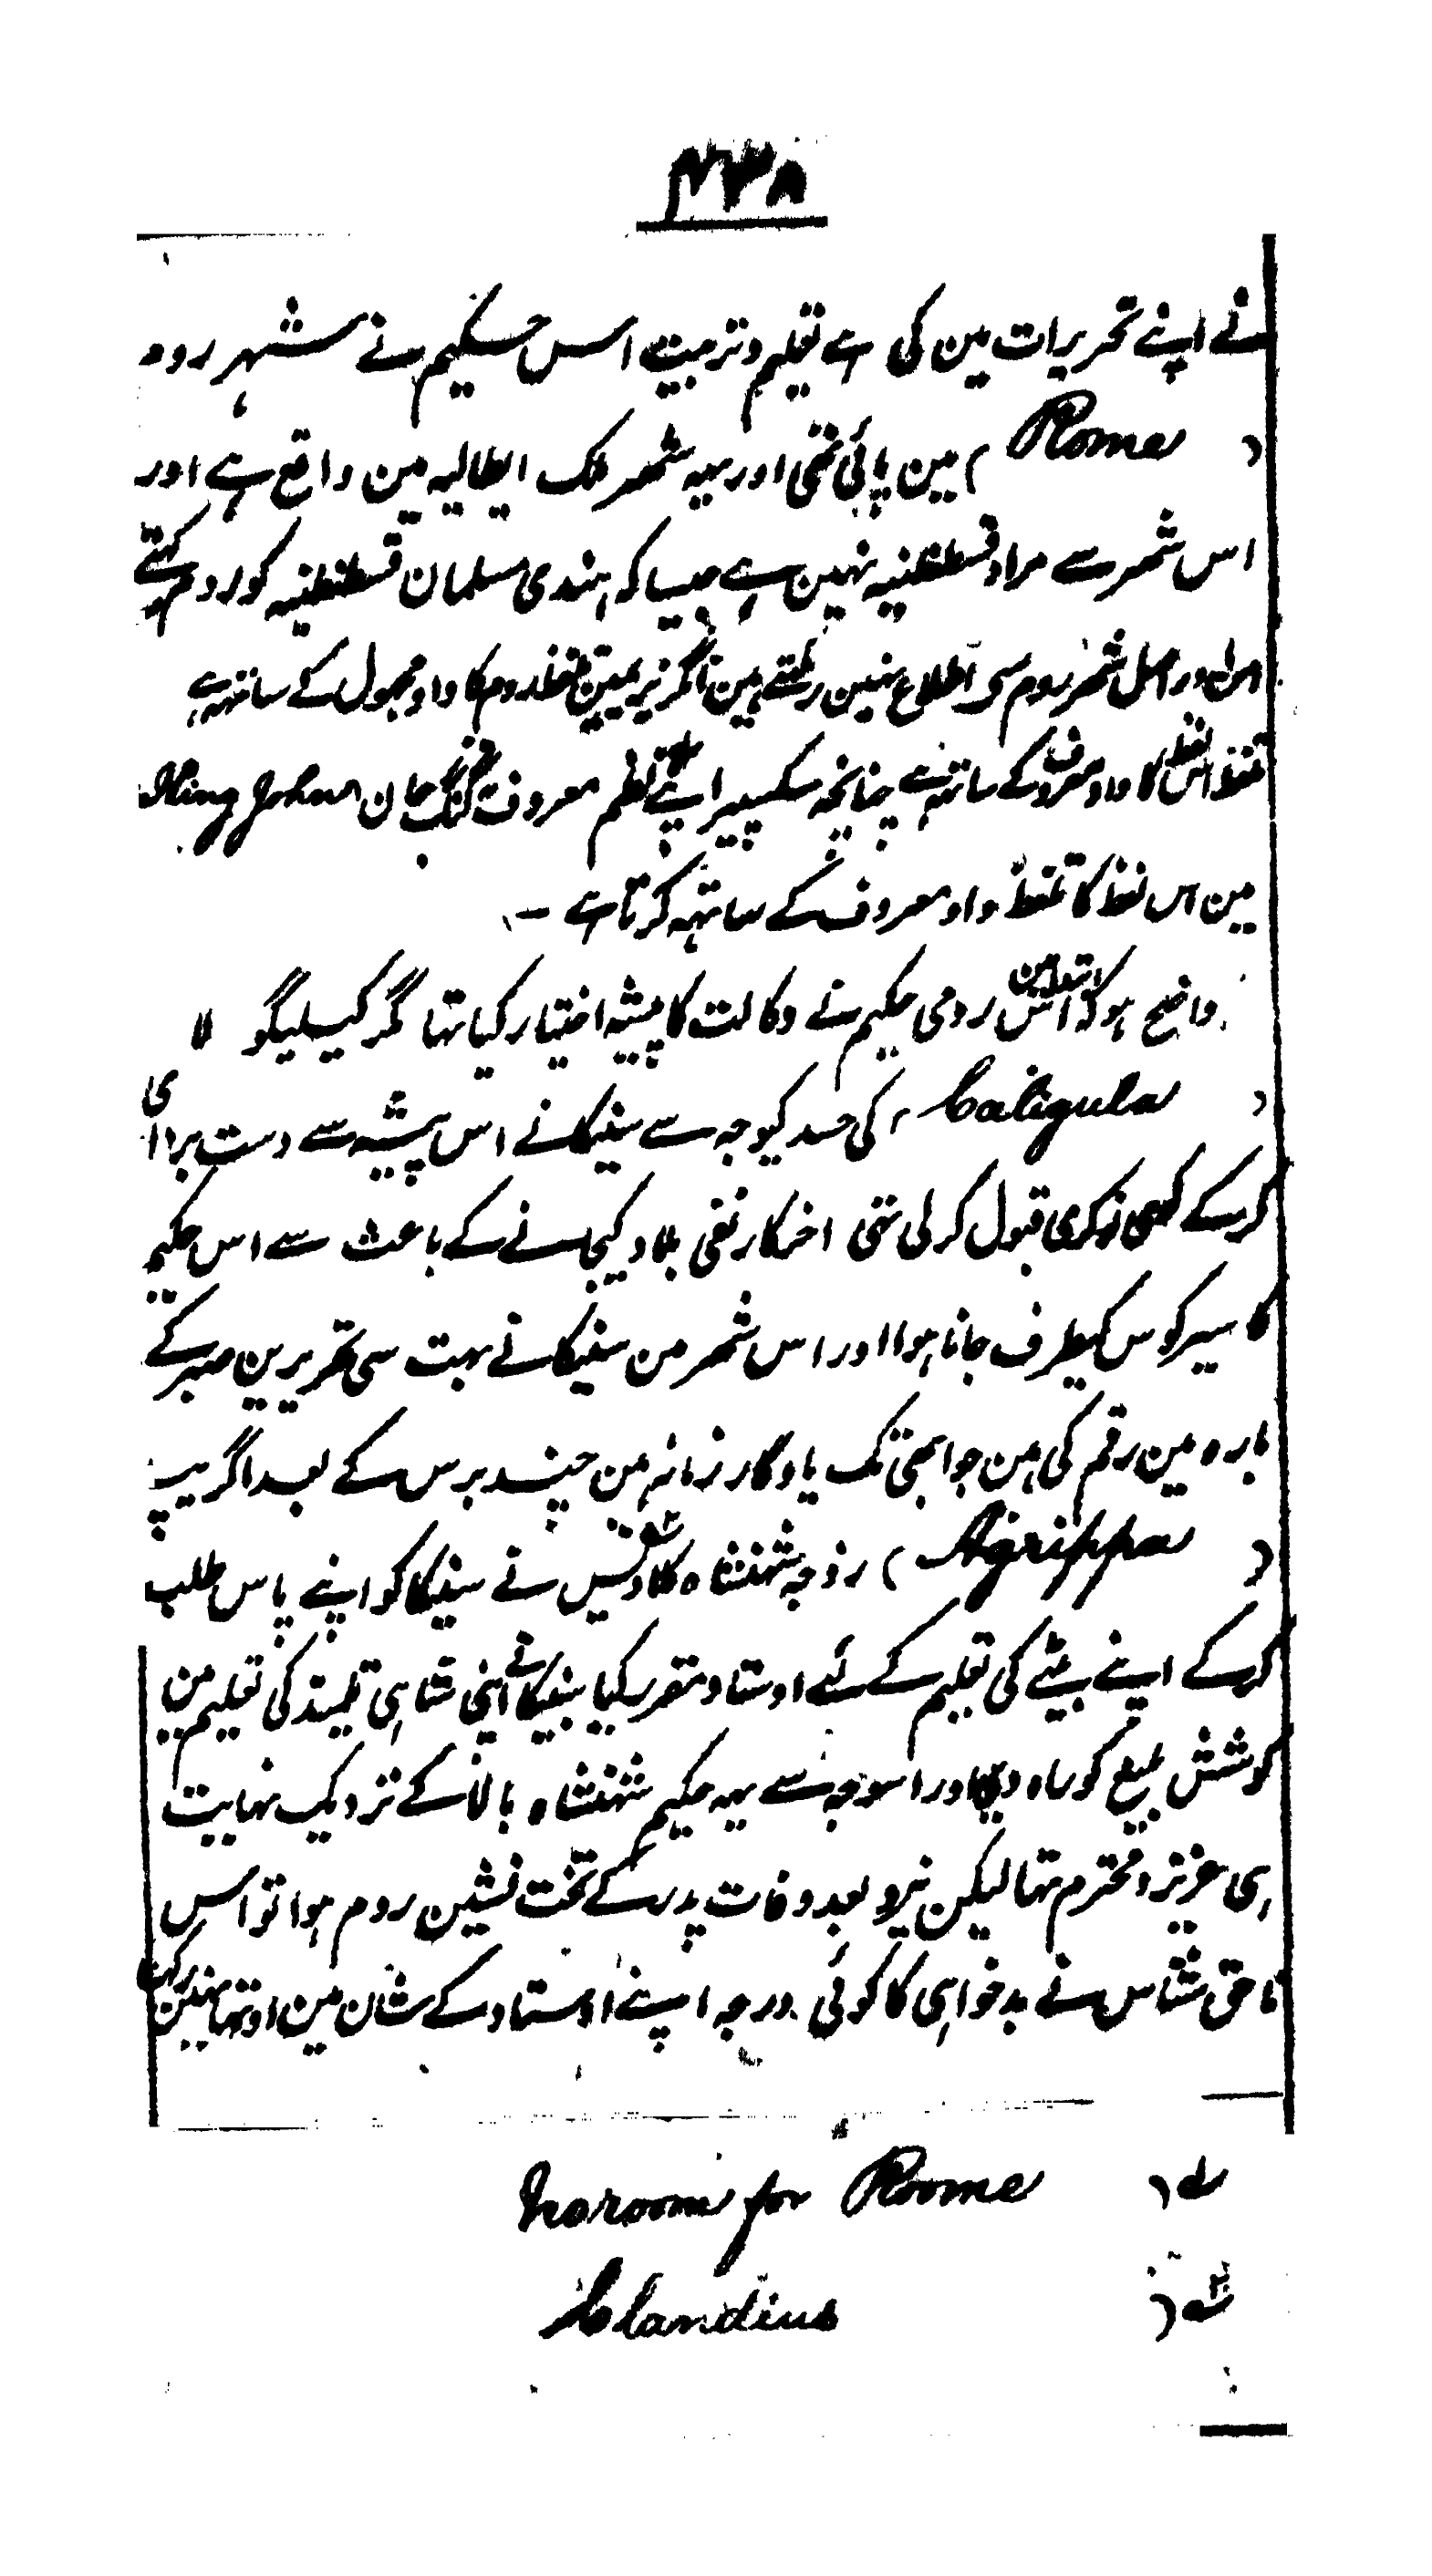 ۴۳۸
نے اپنے تحریرات مین کی ہے تعلیم و تربیت اس حکیم نے شہر روم
( Rome ) مین پائی تھی اور یہہ شہر ملک ایطالیہ مین واقع ہے اور
اس شہر سے مراد قسطنطنیہ نہین ہے جیسا کہ ہندی مسلمان قسطنطنیہ کو روم کہتے
ہین اور اصل شہر روم سے اطلاع نہین رکھتے ہین انگریزی مین تلفظ روم کا واو مجہول کے ساتھہ ہے
تلفظ اس لفظ کا واو معروف کے ساتھہ ہے چنانچہ سکسپیر اپنے نظم معروف کنگ جان King John
مین اس لفظ کا تلفظ واو معروف کے ساتھہ کرتا ہے -
واضح ہو کہ ابتدا مین اس رومی حکیم نے وکالت کا پیشہ اختیار کیا تھا مگر کیلیگو لا
( Caligula ) کی حسد کیوجہ سے سنیکا نے اس پیشہ سے دست برداری
کرکے نوکری قبول کر لی تھی اخرکار نفی بلاد کیجانے کے باعث سے اس حکیم
کا سیرکوس کیطرف جانا ہوا اور اس شہر من سنیکا نے بہت سی تحریرین صبر کے
بارہ مین رقم کی ہین جو ابھی تک یادگار زمانہ ہین چند برس کے بعد اگریپپ
( Agrippa ) زوجہ شہنشاہ کلادیس نے سنیکا کو اپنے پاس طلب
کرکے اپنے بیٹے کی تعلیم کے لئے اوستاد مقرر کیا سنیکا نے اپنی شاہی تلمیذ کی تعلیم من
کوشش بلیغ کو راہ دی اور اسوجہ سے یہہ حکیم شہنشاہ بالا کے نزدیک نہایت
ہی عزیز و محترم تھا لیکن نیرو بعد وفات پدر کے تخت نشین روم ہوا تو اس
ناحق شناس نے بدخواہی کا کوئی درجہ اپنے اوستاد کے شان مین اوٹھا نہین رکھا
No room for Roome
Claudius